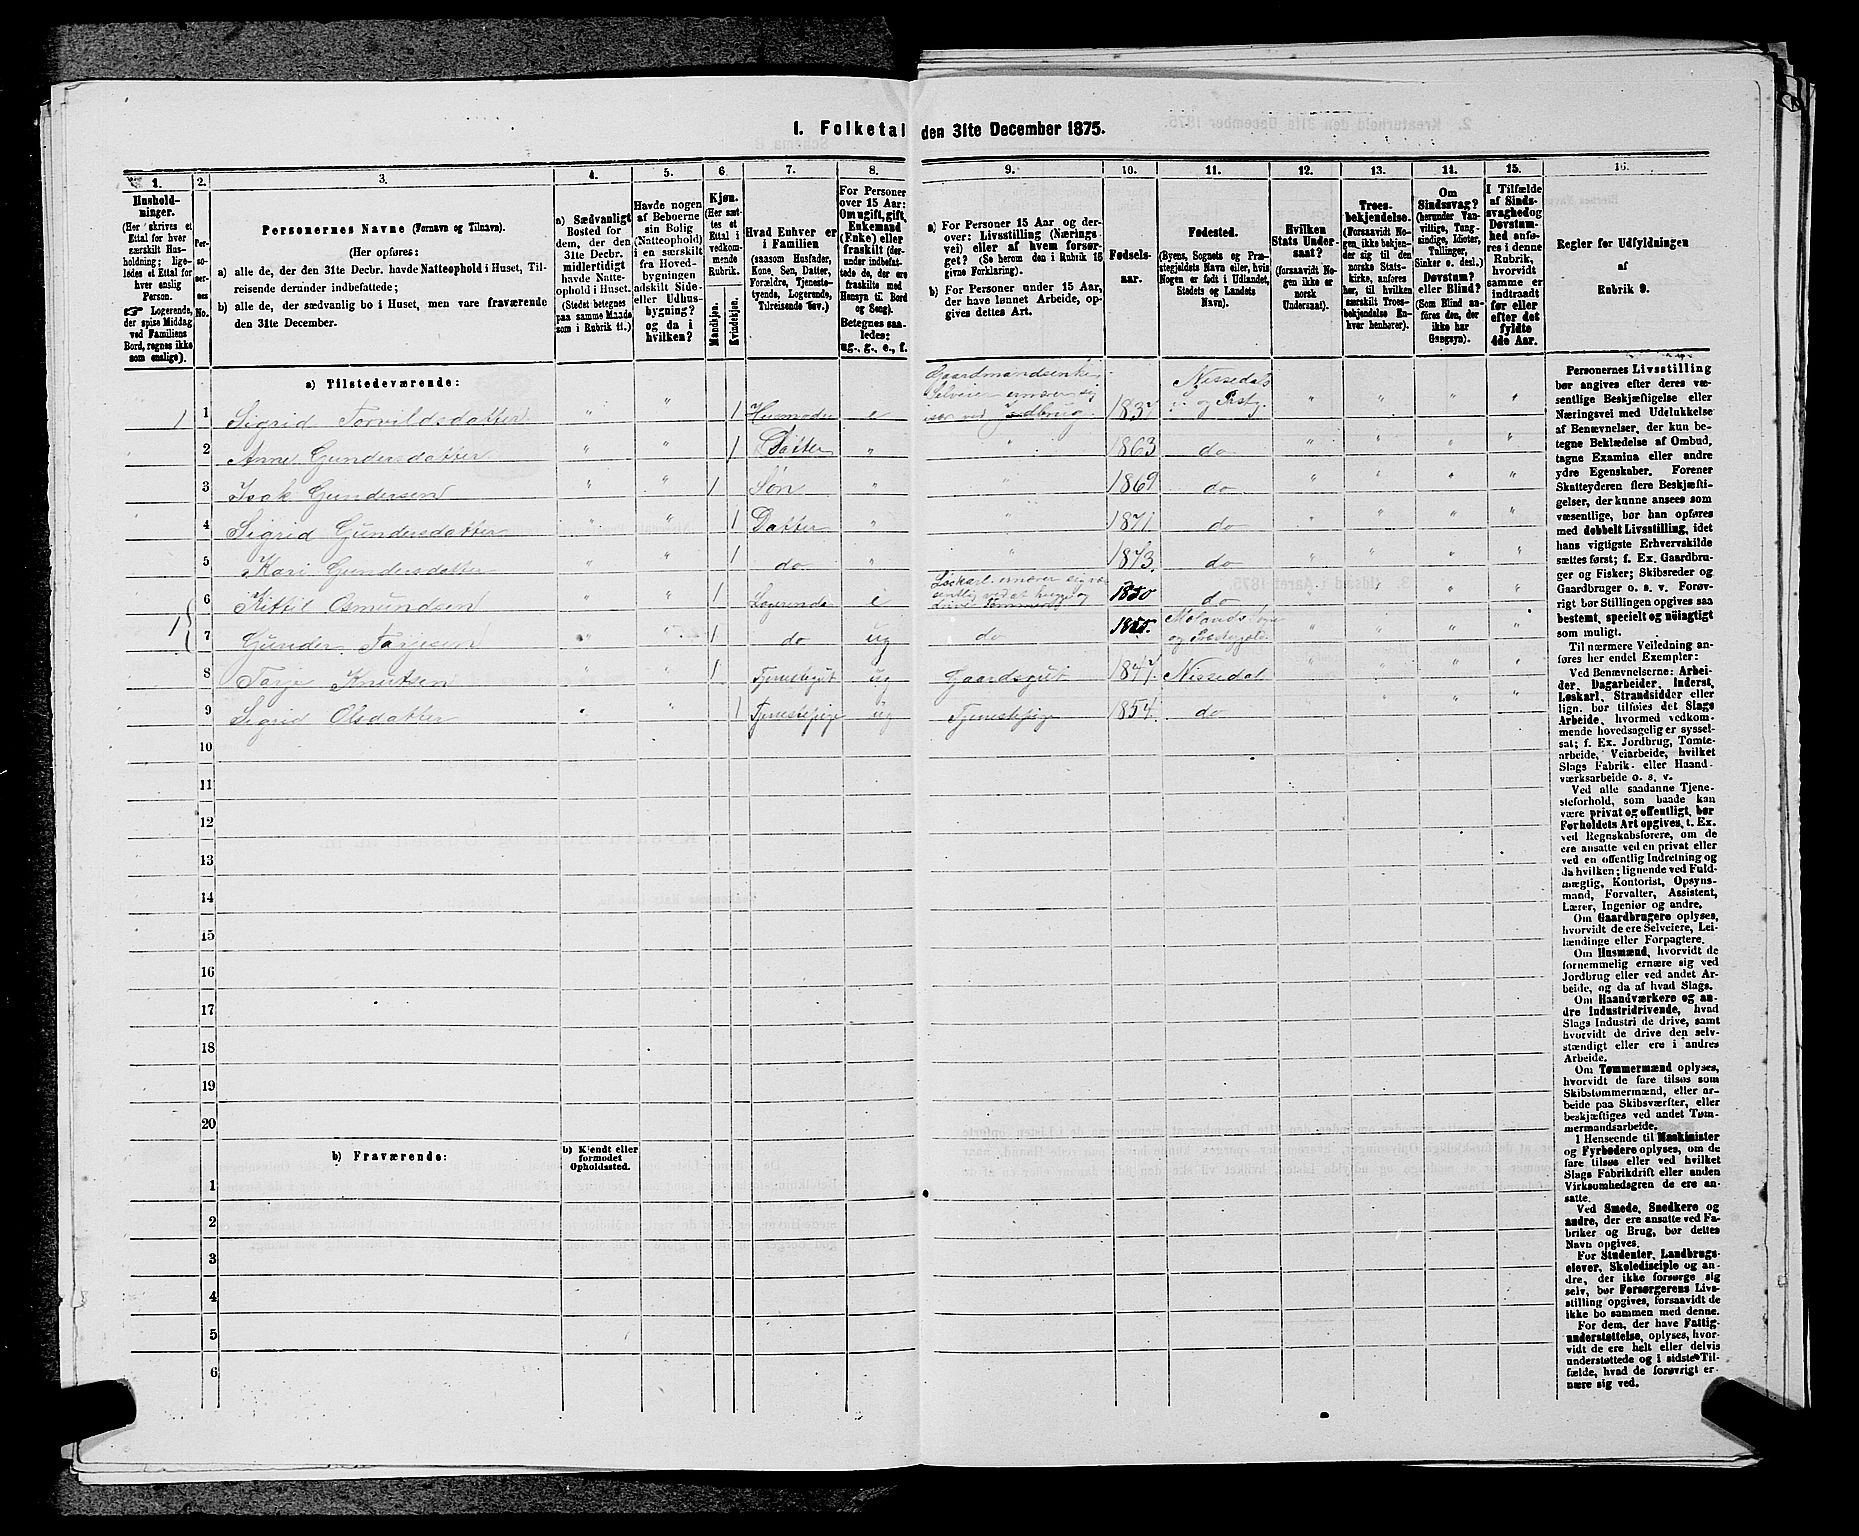 1. Folketal den 31te December 1875.
1.
Hushold-
ninger.
(Her skrives et
Ettal for hver
særskilt Hus-
holdning; lige-
ledes et Ettal for
hver enslig
Person.
☞ Logerende,
der spise Middag
ved Familiens
Bord, regnes ikke
som enslige).
2.
Per-
so-
ner-
nes
No.
3.
Personernes Navne (Fornavn og Tilnavn).
(Her opføres:
a) alle de, der den 31te Decbr. havde Natteophold i Huset, Til-
reisende derunder indbefattede;
b) alle de, der sædvanlig bo i Huset, men vare fraværende
den 31te December.
4.
a) Sædvanligt
Bosted for
dem, der den
31te Decbr.
midlertidigt
havde Natte-
ophold i Huset.
(Stedet betegnes
paa samme Maade
som i Rubrik 11.)
5.
Havde nogen
af Beboerne
sin Bolig
(Natteophold)
i en særskilt
fra Hoved-
bygningen
adskilt Side-
eller Udhus-
bygning?
og da i
hvilken?
6.
Kjøn.
(Her sæt-
tes et
Ettal i
vedkom-
mende
Rubrik.
Mandkjøn.
Kvindekjøn.
7.
Hvad Enhver er
i Familien
(saasom Husfader,
Kone, Søn, Datter,
Forældre, Tjeneste-
tyende, Logerende,
Tilreisende osv.)
8.
For Personer
over 15 Aar:
Om ugift, gift,
Enkemand
(Enke) eller
fraskilt (der-
under indbefat-
tede de, der ere
fraskilte med
Hensyn til Bord
og Seng).
Betegnes saa-
ledes:
ug., g., e., f.
9.
a) For Personer 15 Aar og der-
over: Livsstilling (Nærings-
vei) eller af hvem forsør-
get? (Se herom den i Rubrik 16
givne Forklaring).
b) For Personer under 15 Aar,
der have lønnet Arbeide, op-
gives dettes Art.
10.
Fødsels-
aar.
11.
Fødested.
(Byens, Sognets og Præ-
stegjeldets Navn eller, hvis
Nogen er født i Udlandet,
Stedets og Landets
Navn).
12.
Hvilken
Stats Under-
saat?
(forsaavidt No-
gen ikke er
norsk
Undersaat).
13.
Troes-
bekjendelse.
(Forsaavidt No-
gen, ikke bekjen-
der sig til den
norske Stats-
kirke, anføres
her, til hvilken
særskilt Troes-
bekjendelse En-
hver henhører).
14.
Om
Sindssvag?
(herunder Van-
vittige, Tung-
sindige, Idioter,
Tullinger,
Sinker o. desl.)
Døvstum?
eller Blind?
(Som Blind an-
føres den, der
ikke har
Gangsyn).
15.
I Tilfælde
af Sinds-
svaghed og
Døvstum-
hed anfø-
res i denne
Rubrik,
hvorvidt
samme er
indtraadt
før eller
efter det
fyldte
4de Aar.
16.
Regler for Udfyldningen
af
Rubrik 9.
a) Tilstedeværende:
1 1 Sigrid Torvildsdatter " " 1 Husmoder e Gaardmandsenke Selveier ernærer sig især ved Jordbrug 1837 Nissedals S. og Prstg. " " " "
2 Anne Gundersdatter " " 1 Datter " " 1863 do " " " "
3 Isak Gundersen " " 1 Søn " " 1869 do " " " "
4 Sigrid Gundersdatter " " 1 Datter " " 1871 do " " " "
5 Kari Gundersdatter " 1 do " " 1873 do " " " "
6 Kittil Osmundsen " " 1 Logerende e Løskarl ernærer sig væsentlig ved at hugge og drive Tømmer 1830 do " " " "
1 7 Gunder Tarjesen " " 1 do ug do 1850 Molands Sogn og Præstegjeld " " " "
8 Tarje Knutsen " " 1 Tjenestegut ug Gaardsgut 1847 Nissedal " " " "
9 Sigrid Olsdatter " " 1 Tjenestepige ug Tjenestepige 1854 do " " " "
10
11
12
13
14
15
16
17
18
19
20
b) Fraværende:
b) Kjendt eller
formodet
Opholdssted.
1
2
3
4
4
5
6
Personernes Livsstilling
bør angives efter deres væ-
sentlige Beskjæftigelse eller
Næringsvei med Udelukkelse
af Benævnelser, der kun be-
tegne Beklædelse af Ombud,
tagne Examina eller andre
ydre Egenskaber. Forener
Skatteyderen flere Beskjæfti-
gelser, der kunne ansees som
væsentlige, bør han opføres
med dobbelt Livsstilling, idet
hans vigtigste Erhvervskilde
sættes først; f. Ex. Gaardbru-
ger og Fisker; Skibsreder og
Gaardbruger o. s. v. Forøv-
rigt bør Stillingen opgives saa
bestemt, specielt og nøiagtigt
som muligt.
Til nærmere Veiledning an-
føres her endel Exempler:
Ved Benævnelserne: Arbei-
der, Dagarbeider, Inderst,
Løskarl, Strandsidder eller
lign. bør tilføies det Slags
Arbeide, hvormed vedkom-
mende hovedsagelig er syssel-
sat; f. Ex. Jordbrug, Tomte-
arbeide, Veiarbeide, hvilket
Slags Fabrik- eller Haand-
værksarbeide o. s. v.
Ved alle saadanne Tjene-
steforhold, som baade kan
være privat og offentligt, bør
Forholdets Art opgives, t. Ex.
ved Regnskabsførere, om de
ere ansatte ved en privat eller
ved en offentlig Indretning og
da hvilken; lignende ved Fuld-
mægtig, Kontorist, Opsyns-
mand, Forvalter, Assistent,
Lærer, Ingeniør og andre.
Om Gaardbrugere oplyses,
hvorvidt de ere Selveiere, Lei-
lændinge eller Forpagtere.
Om Husmænd, hvorvidt de
fornemmelig ernære sig ved
Jordbrug eller ved andet Ar-
beide, og da af hvad Slags.
Om Haandværkere og an-
dre Industridrivende, hvad
Slags Industri de drive, samt
hvorvidt de drive den selv-
stændigt eller ere i andres
Arbeide.
Om Tømmermænd oplyses,
hvorvidt de fare tilsøs som
Skibstømmermænd, eller ar-
beide paa Skibsværfter, eller
beskjæftiges ved andet Tøm-
mermandsarbeide.
I Henseende til Maskinister
og Fyrbødere oplyses, om de
fare tilsøs eller ved hvilket
Slags Fabrikdrift eller anden
Virksomhedsgren de ere an-
satte.
Ved Smede, Snedkere og
andre, der ere ansatte ved Fa-
briker og Brug, bør dettes
Navn opgives.
For Studenter, Landbrugs-
elever, Skoledisciple og an-
dre, der ikke forsørge sig
selv, bør Forsørgerens Livs-
stilling opgives, forsaavidt de
ikke bo sammen med denne.
For dem, der have Fattig-
understøttelse, oplyses, hvor-
vidt de ere helt eller delvis
understøttede og i sidste Til-
fælde, hvad de forøvrigt er-
nære sig ved.